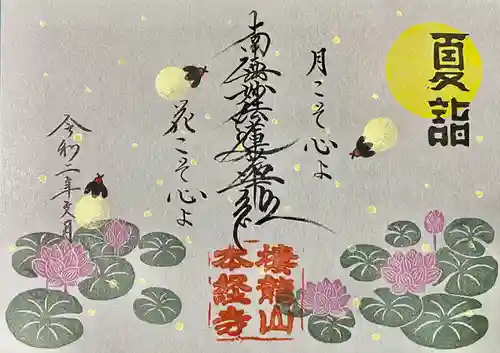 夏詣
月こそ心よ
南無妙法蓮華経
花こそ心よ
令和二年文月
櫻龍山
本経寺